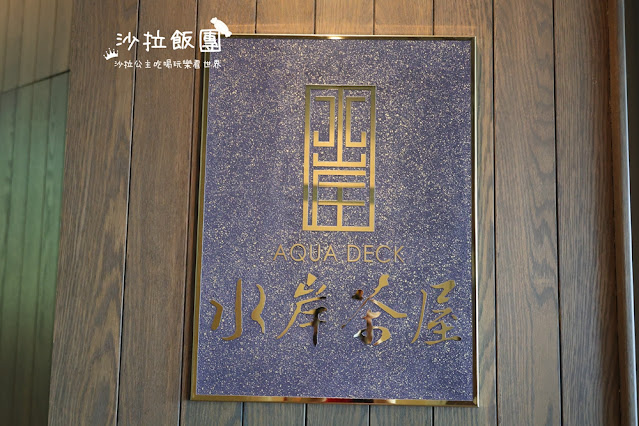 沙拉飯團
沙拉公主吃喝玩樂看世界
AQUA DECK
水岸茶屋